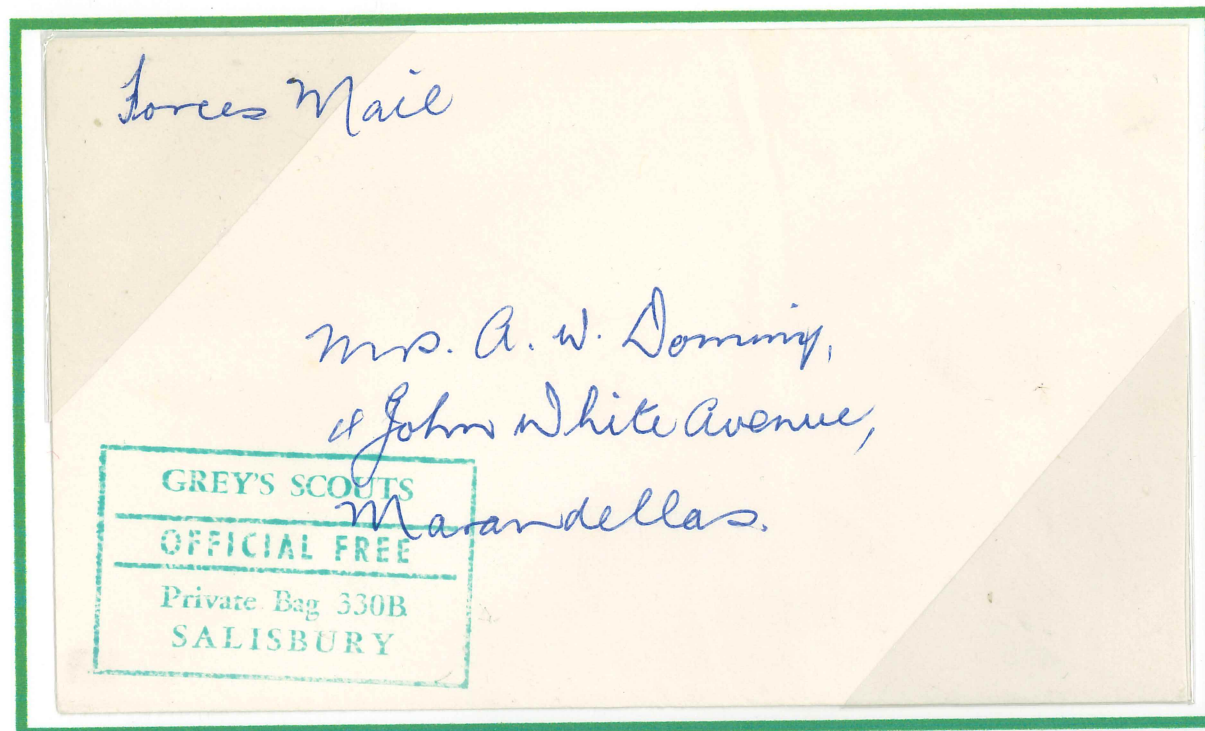 Forces Mail
Mrs. A. W. Dominy,
John White Avenue,
Marandellas.
GREY'S SCOUTS
OFFICIAL FREE
Private Bag 330B
SALISBURY